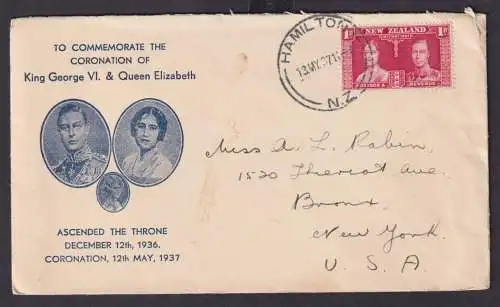 TO COMMEMORATE THE
CORONATION OF
King George VI. & Queen Elizabeth
ASCENDED THE THRONE
DECEMBER 12th, 1936.
CORONATION, 12th MAY, 1937
HAMILTON
N.Z.
1D NEW ZEALAND 1D
REVENUE
Miss A. L. Rabin,
1520 Theriot Ave.
Bronx.
New York.
U. S. A.